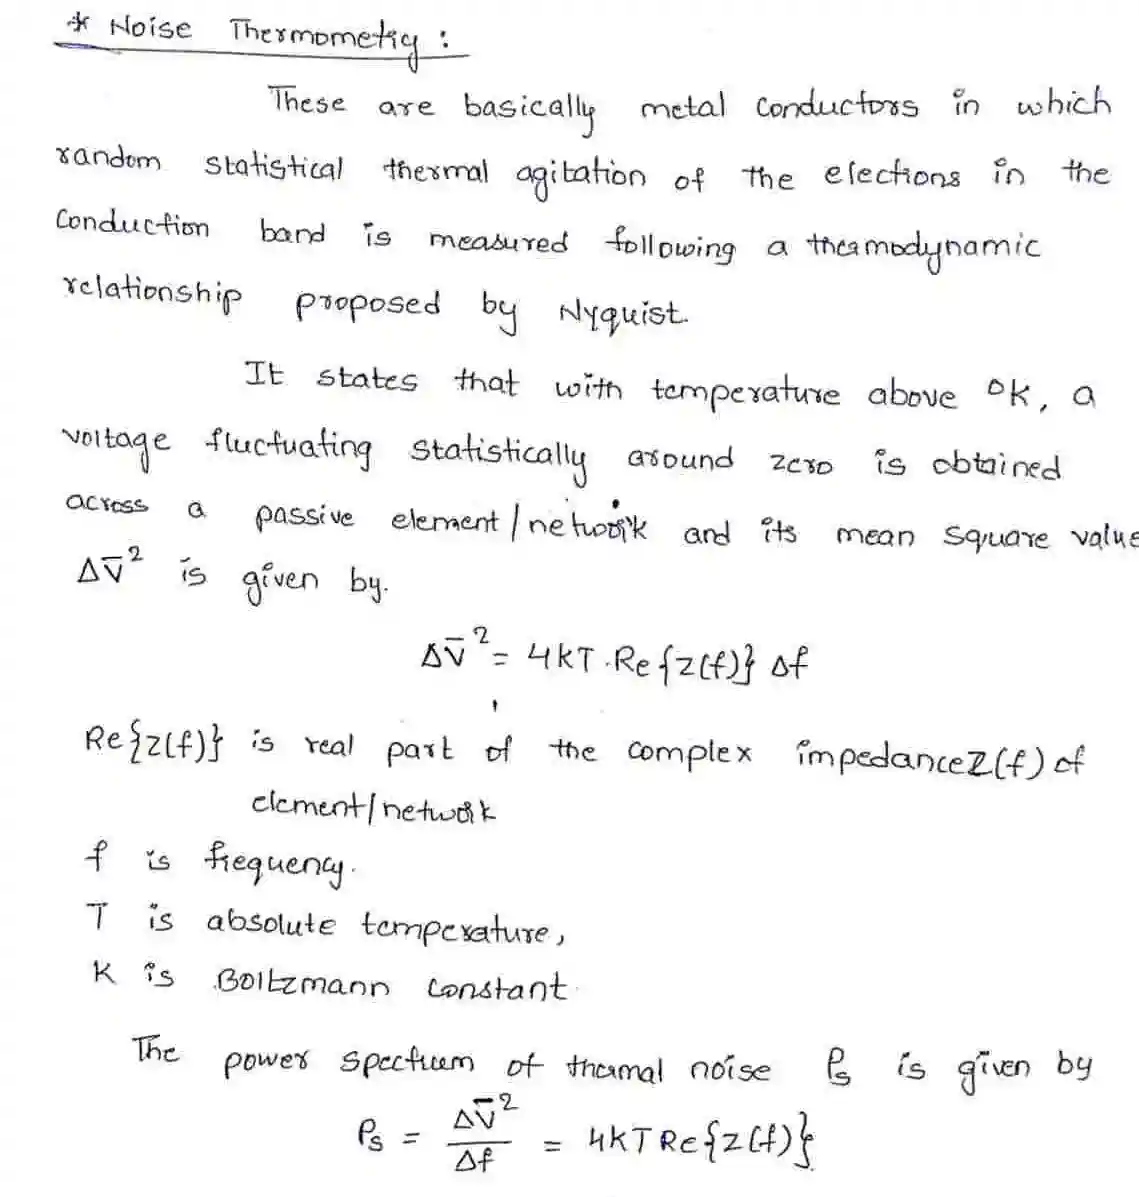 * Noise Thermometry :
These are basically metal conductors in which
random statistical thermal agitation of the elections in the
Conduction band is measured following a thermodynamic
relationship proposed by Nyquist.
It states that with temperature above 0K, a
voltage fluctuating statistically around zero is obtained
across a passive element/network and its mean square value
ΔV̄² is given by.
ΔV̄² = 4kT.Re{Z(f)} Δf
Re{Z(f)} is real part of the complex impedance Z(f) of
element/network
f is frequency.
T is absolute temperature,
K is Boltzmann constant.
The power spectrum of thermal noise Ps is given by
Ps = ΔV̄²/Δf = 4KT Re{Z(f)}